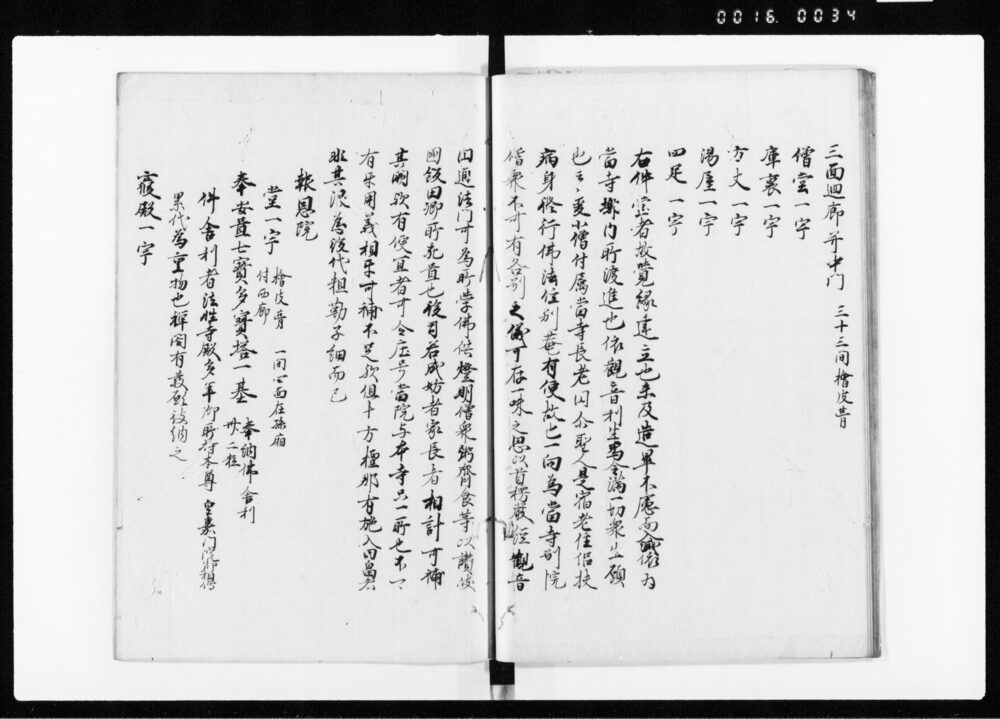 0016.0034
三面廻廊并中門 三十三間檜皮葺
僧堂一宇
庫裏一宇
方丈一宇
湯屋一宇
四足一宇
右件堂者故覚縁建立也未及造畢不慮而為
当寺墎内所渡進也依観音利生為令満一切衆生願
也云々爰小僧付属当寺長老円尓聖人是宿老住侶扶
病身修行仏法住別菴有便故也一向為当寺別院
僧衆不可有各別之儀可存一味之思以首楞厳経観音
円通法門可為所学仏供燈明僧衆粥斉食等以讃岐
國飯田郷所宛置也後司若成妨者家長者相計可補
其闕欤有便宜者可令庄号当院与本寺只一所也不可
有牙用義相牙可補不足欤但十方檀那有施入田畠者
非其限為後代粗勒子細而已
報恩院
堂一宇 檜皮葺 一間四面在孫廂
付西廊
奉安置七寳多寳塔一基 奉納佛舎利
卅二粒
件舎利者法性寺殿多年御所持本尊 皇嘉門院御相傳
累代為重物也禅閤有発願被納之
寝殿一宇